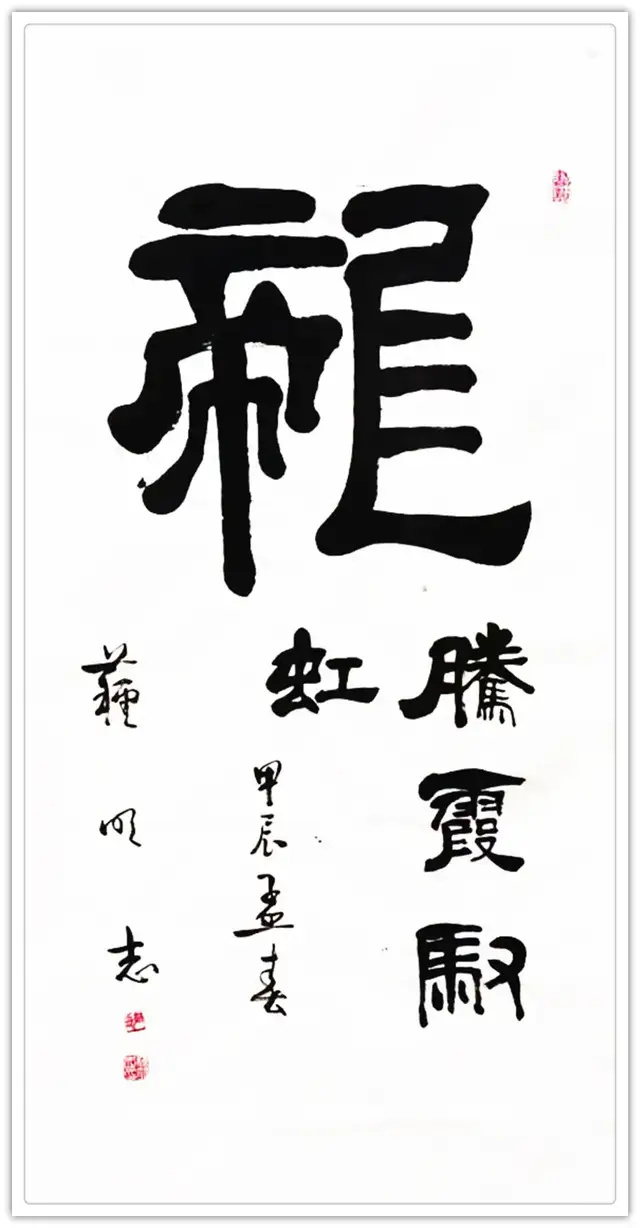 龍
騰霞馭
虹
甲辰孟春
明志